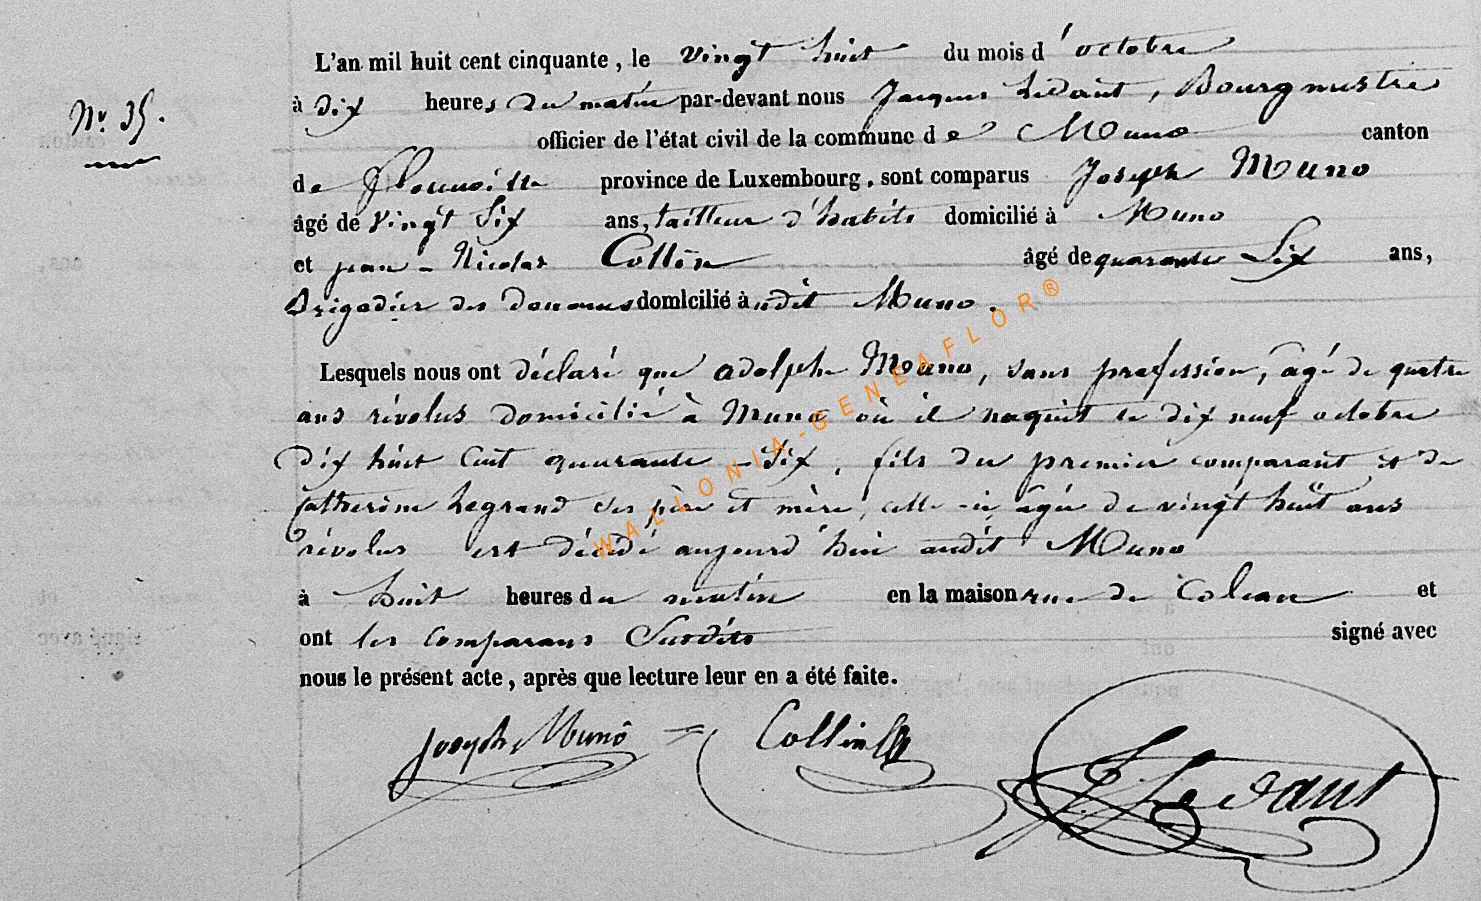 L'an mil huit cent cinquante, le vingt huit du mois d'octobre
N° 35.
à dix heures du matin par-devant nous Jacques Ledant, Bourgmestre
officier de l'état civil de la commune de Muno canton
de Florenville province de Luxembourg, sont comparus Joseph Muno
âgé de vingt Six ans, tailleur d'habits domicilié à Muno
et jean-Nicolas Collin âgé de quarante Six ans,
Brigadier des douanes domicilié àudit Muno.
Lesquels nous ont déclaré que adolphe Muno, sans profession, âgé de quatre
ans révolus domicilié à Muno où il naquit le dix neuf octobre
dix huit Cent quarante-Six, fils du premier comparant et de
Catherine Legrand ses père et mère, celle-ci âgée de vingt huit ans
révolus est décédé aujourd'hui audit Muno
à huit heures du matin en la maison rue de et
ont les comparans Susdits signé avec
nous le présent acte, après que lecture leur en a été faite.
Joseph Muno Collin J Ledant
WALLONIA-GENEAFLOR®